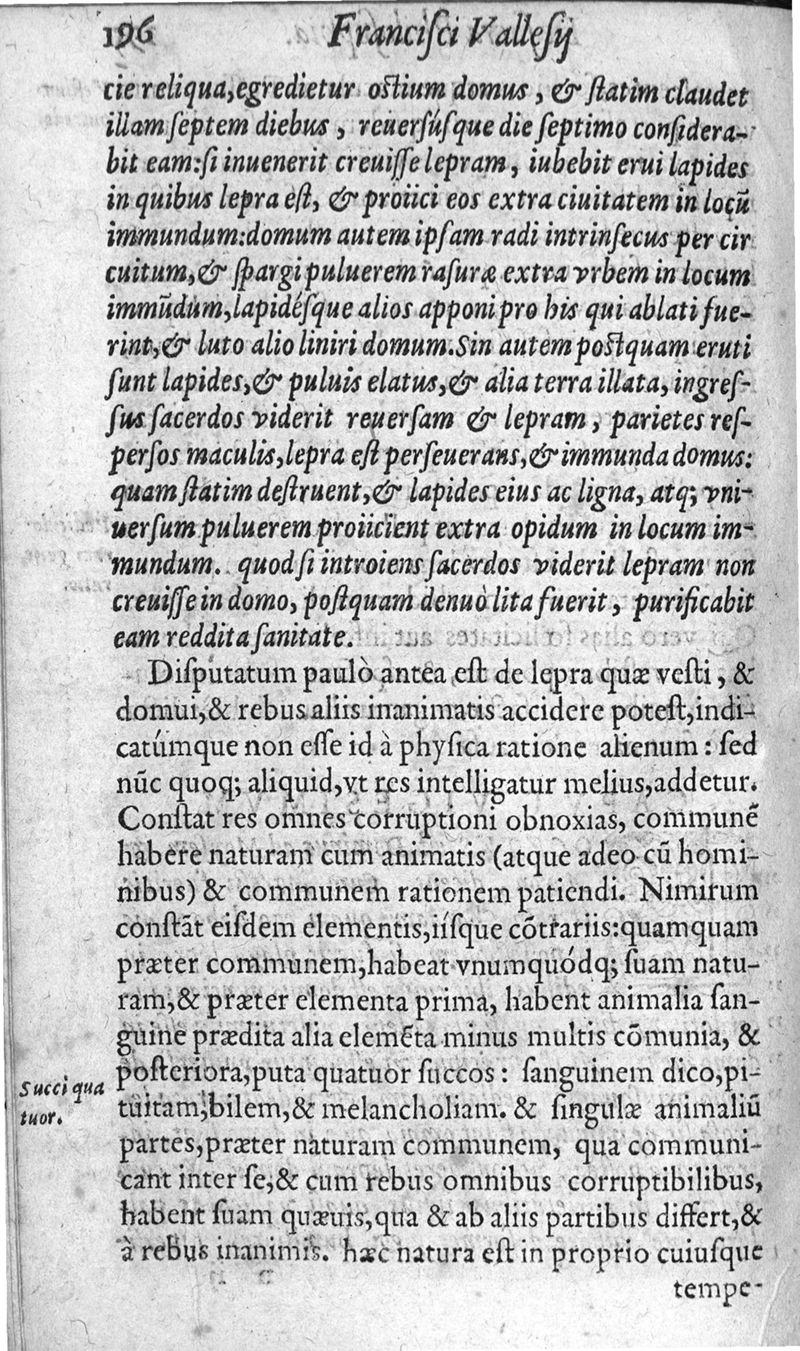 196 Franciſci Valleſij
cie reliqua,egredietur oſtium domus , & ſtatim claudet
illam ſeptem diebus , reuerſúſque die ſeptimo conſidera-
bit eam:ſi inuenerit creuiſſe lepram, iubebit erui lapides
in quibus lepra eſt, & proiici eos extra ciuitatem in locũ
immundum:domum autem ipſam radi intrinſecus per cir
cuitum,& ſpargi puluerem raſuræ extra vrbem in locum
immũdum,lapidéſque alios apponi pro his qui ablati fue-
rint,& luto alio liniri domum.Sin autem poſtquam eruti
ſunt lapides,& puluis elatus,& alia terra illata, ingreſ-
ſus ſacerdos viderit reuerſam & lepram, parietes reſ-
perſos maculis,lepra eſt perſeuerans,& immunda domus:
quam ſtatim deſtruent,& lapides eius ac ligna, atq; vni-
uerſum puluerem proiicient extra opidum in locum im-
mundum. quod ſi introiens ſacerdos viderit lepram non
creuiſſe in domo, poſtquam denuò lita fuerit , purificabit
eam reddita ſanitate.
Diſputatum paulò antea eſt de lepra quæ veſti, &
domui,& rebus aliis inanimatis accidere poteſt,indi-
catúmque non eſſe id à phyſica ratione alienum : ſed
nũc quoq; aliquid,vt res intelligatur melius,addetur.
Conſtat res omnes corruptioni obnoxias, communẽ
habere naturam cum animatis (atque adeo cũ homi-
nibus) & communem rationem patiendi. Nimirum
conſtãt eiſdem elementis,iíſque cõtrariis:quamquam
præter communem,habeat vnumquódq; ſuam natu-
ram,& præter elementa prima, habent animalia ſan-
guine prædita alia elemẽta minus multis cõmunia, &
poſteriora,puta quatuor ſuccos : ſanguinem dico,pi-
Succi qua
tuor.
tuitam,bilem,& melancholiam. & ſingulæ animaliũ
partes,præter naturam communem, qua communi-
cant inter ſe,& cum rebus omnibus corruptibilibus,
habent ſuam quæuis,qua & ab aliis partibus differt,&
à rebus inanimis. hæc natura eſt in proprio cuiuſque
tempe-